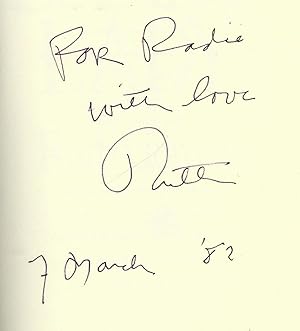 For Radie
with love
Ruth
7 March '82